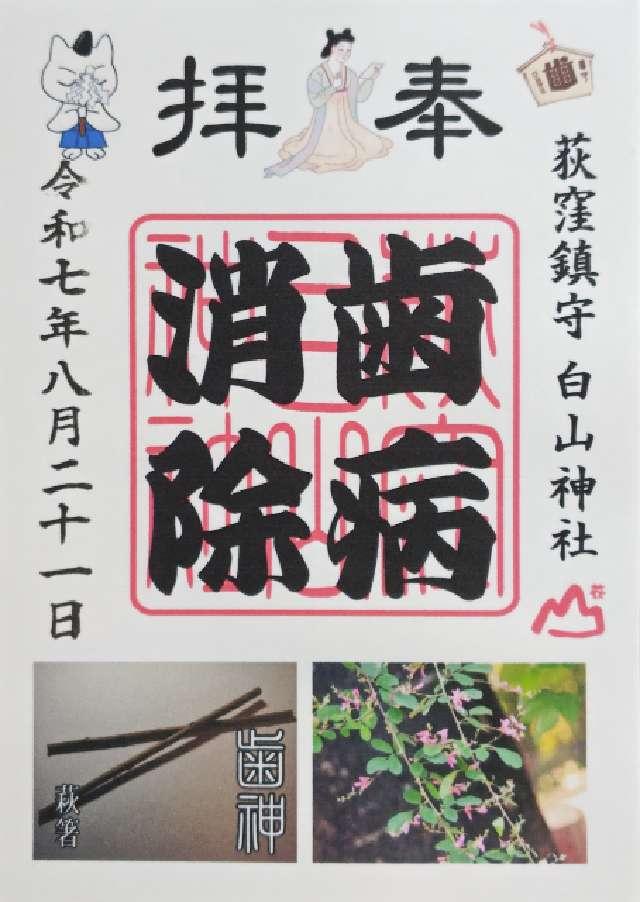 奉拝
荻窪鎮守 白山神社
歯病
消除
令和七年八月二十一日
萩箸
歯神